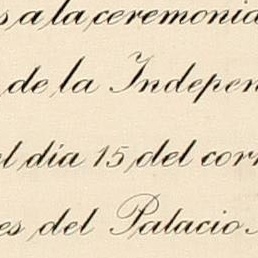 s a la ceremonia
de la Indepen
el día 15 del corr
es del Palacio